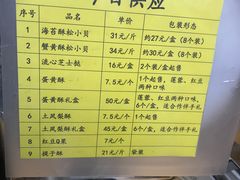 今日供应
序号 品名 单价 包装形态
1 海苔酥松小贝 31元/斤 约27元/盒(8个装)
2 蟹黄酥松小贝 34元/斤 约30元/盒(8个装)
3 流心芝士酥 16元/盒 2个/盒起售
4 蛋黄酥 7.5元/个 1个起售,莲蓉、红豆
两种口味
5 蛋黄酥礼盒 50元/盒 莲蓉、红豆两种口味,
6个/盒,适合作伴手礼
6 土凤梨酥 7.5元/个 1个起售
7 土凤梨酥礼盒 45元/盒 6个/盒,适合作伴手礼
8 红豆Q果 7元/个
9 提子酥 21元/斤 袋装